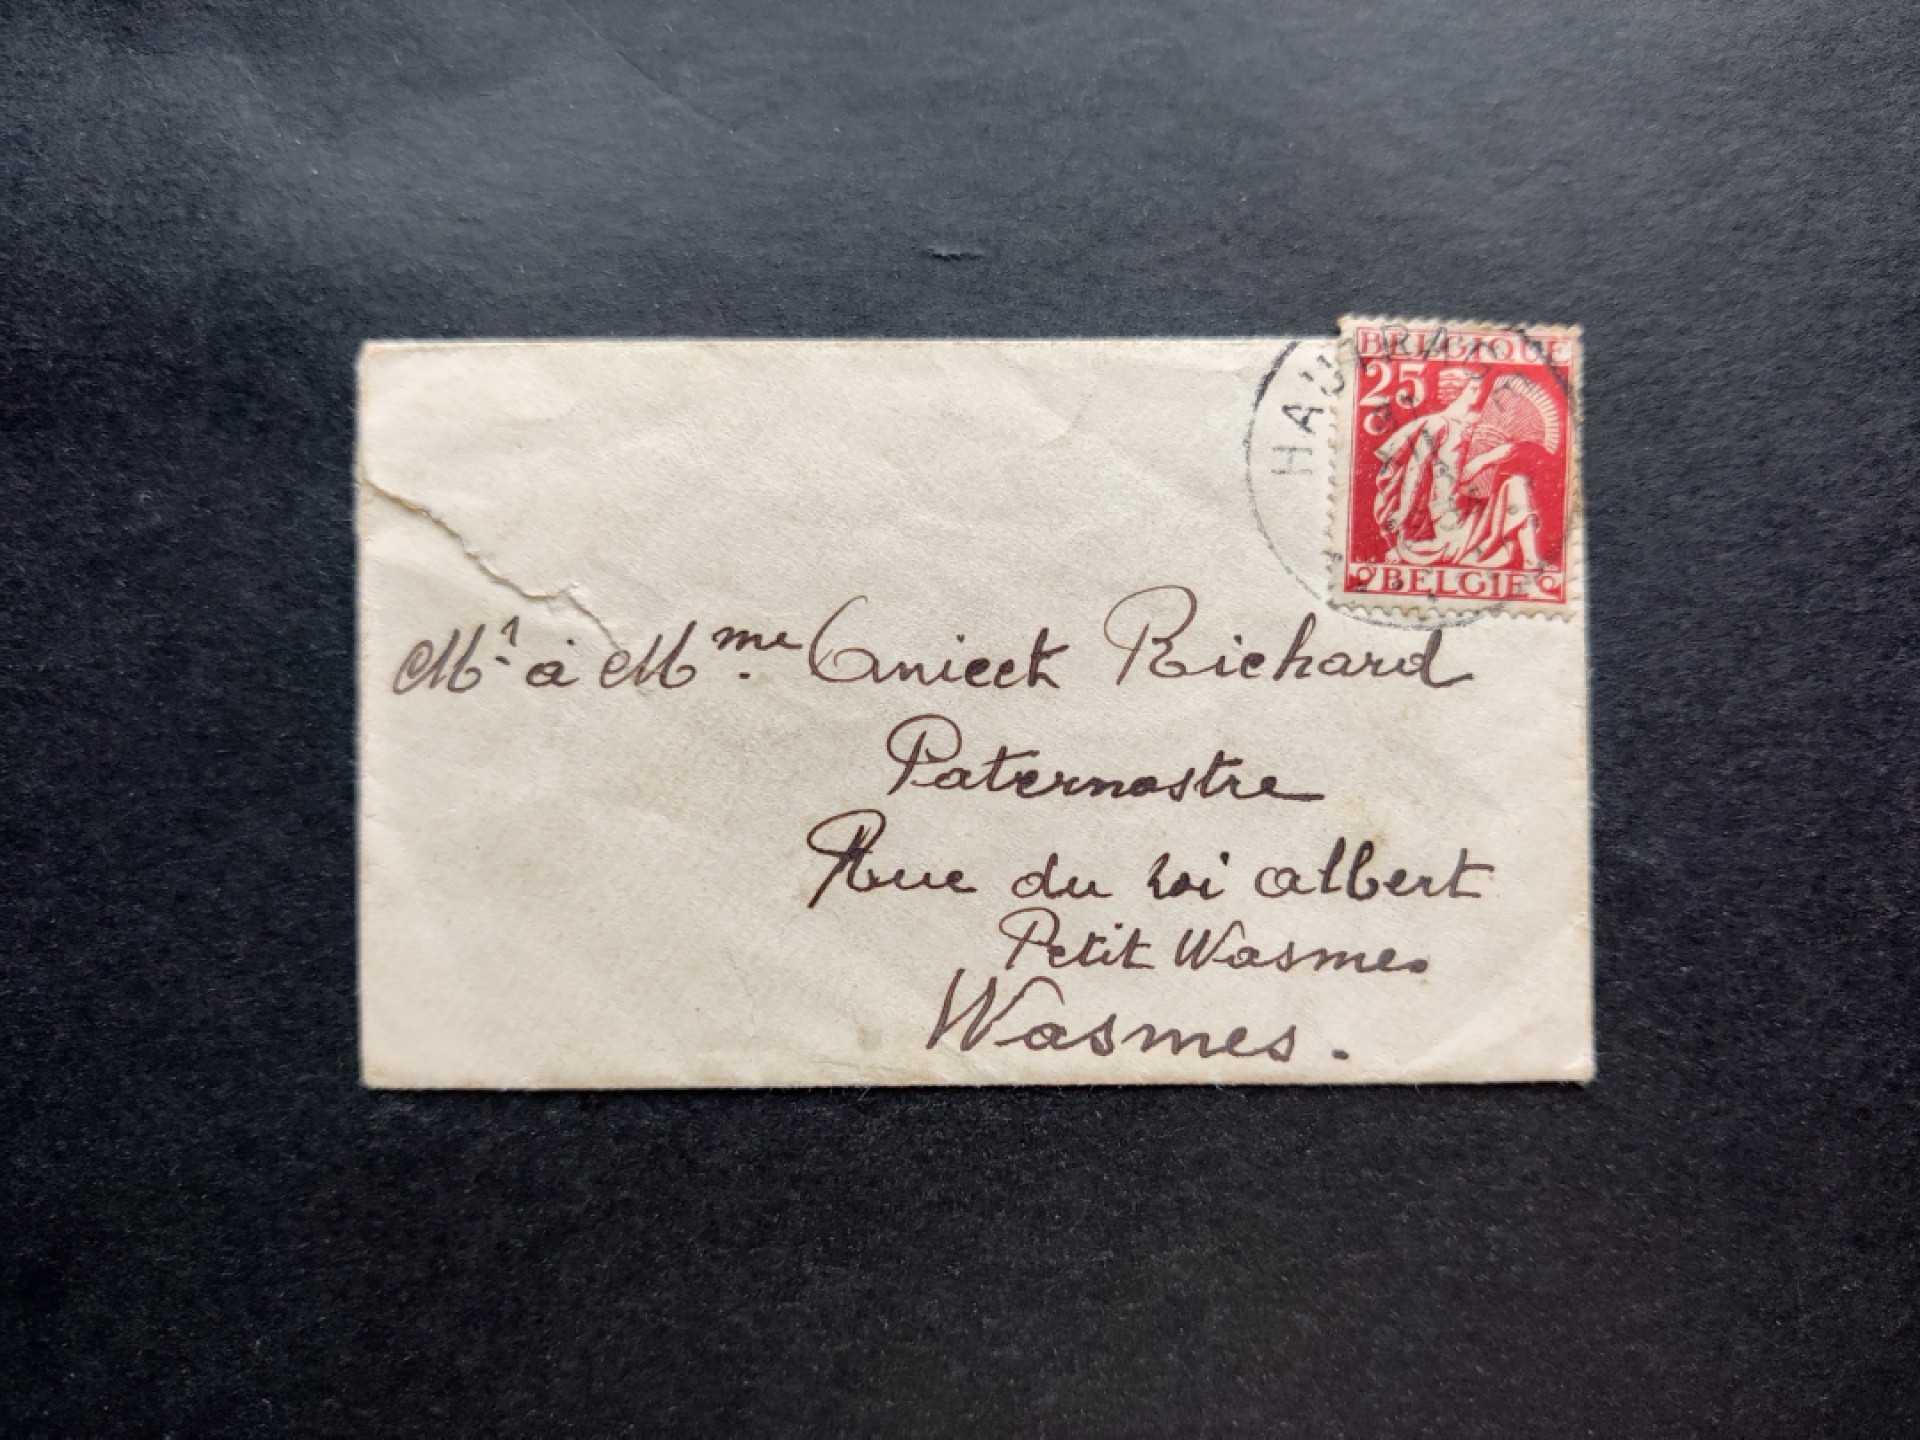 BELGIQUE
25
BELGIE
HAUTRAGE
Mr à Mme Cnieck Richard
Paternostre
Rue du roi albert
Petit Wasmes
Wasmes.